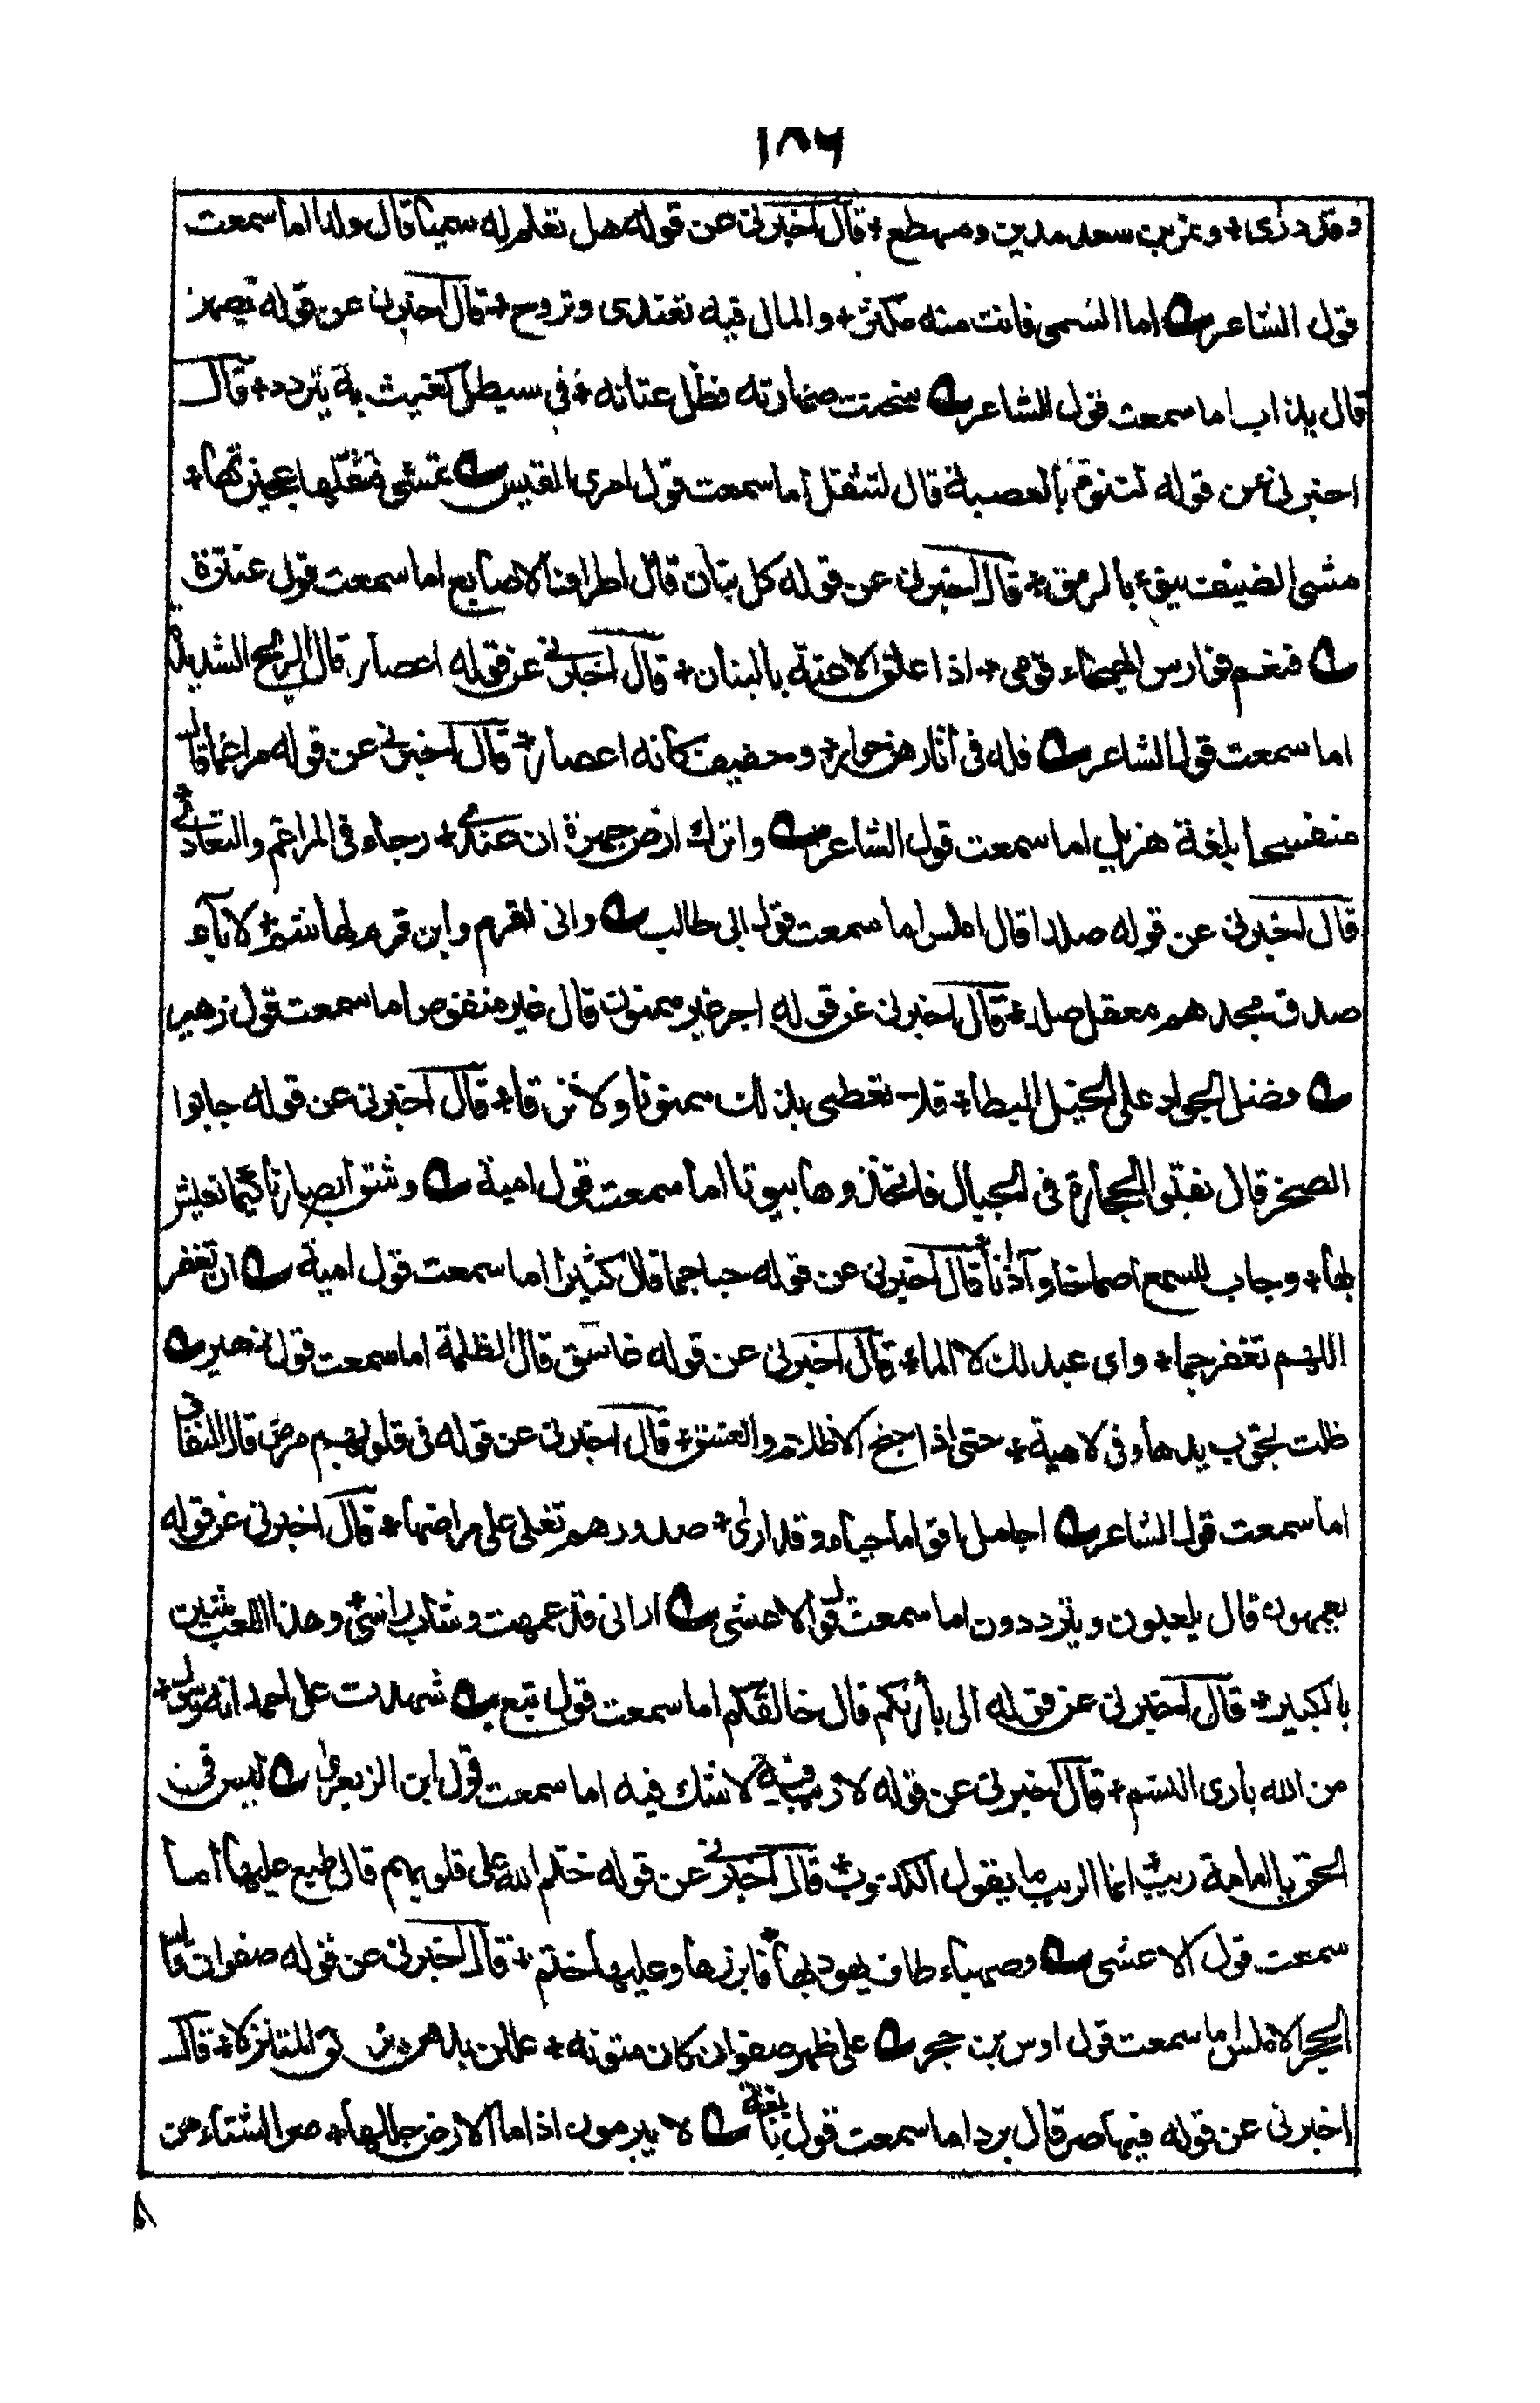 ١٨٦
وقد درى + ونمر بن سعد مدين ومهطع + قال اخبرنى عن قوله هل تعلم له سميا قال ولدا اما سمعت
قول الشاعر اما السمى فانت منه مكثر + والمال فيه تغتدى وتروح + قال اخبرنى عن قوله يصهر
قال يذاب اما سمعت قول الشاعر سخنت صهارته فظل عثانه + فى سيطل كفيت به يتردد + قال
اخبرنى عن قوله لتنوء بالعصبة قال لتثقل اما سمعت قول امرى القيس تمشى فتثقلها عجيزتها +
مشى الضعيف ينوء بالوسق + قال اخبرنى عن قوله كل بنان قال اطراف الاصابع اما سمعت قول عنترة
فنعم فوارس الهيجاء قومى + اذا علق الاعنة بالبنان + قال اخبرنى عن قوله اعصار قال الريح الشديدة
اما سمعت قول الشاعر فله فى آثارهن خوار + وحفيف كانه اعصار + قال اخبرنى عن قوله مراغما قال
منفسحا بلغة هذيل اما سمعت قول الشاعر واترك ارض جهرة ان عندى + رجاء فى المراغم والتعادى +
قال اخبرنى عن قوله صلدا قال املس اما سمعت قول ابى طالب وانى لقرم وابن قرم لهاشم + لآباء
صدق مجدهم معقل صلد + قال اخبرنى عن قوله اجر غير ممنون قال غير منقوص اما سمعت قول زهير
فضل الجواد على الخيل البطاء + فلا يعطى بذلك ممنونا ولا نزقا + قال اخبرنى عن قوله جابوا
الصخر قال نقبوا الحجارة فى الجبال فاتخذوها بيوتا اما سمعت قول امية وشق ابصارنا كيما نعيش
بها + وجاب للسمع اصماخا وآذانا + قال اخبرنى عن قوله حبا جما قال كثيرا اما سمعت قول امية ان تغفر
اللهم تغفر جما + واى عبد لك لا الما + قال اخبرنى عن قوله غاسق قال الظلمة اما سمعت قول زهير
ظلت تجوب يداها وفى لاهية + حتى اذا جنح الاظلام والغسق + قال اخبرنى عن قوله فى قلوبهم مرض قال النفاق
اما سمعت قول الشاعر اجامل اقواما حياء وقد ارى + صدورهم تغلى على مراضها + قال اخبرنى عن قوله
يعمهون قال يلعبون ويترددون اما سمعت قول الاعشى ارانى قد عمهت وشاب راسى + وهذا اللعب شين
بالكبير + قال اخبرنى عن قوله الى بارئكم قال خالقكم اما سمعت قول تبع شهدت على احمد انه رسول +
من الله بارى النسم + قال اخبرنى عن قوله لا ريب فيه لا شك فيه اما سمعت قول ابن الزبعرى ليس فى
الحق يا امامة ريب + انما الريب ما يقول الكذوب + قال اخبرنى عن قوله ختم الله على قلوبهم قال طبع عليها اما
سمعت قول الاعشى وصهباء طاف يهود بها + فابرزها وعليها ختم + قال اخبرنى عن قوله صفوان قال
الحجر الاملس اما سمعت قول اوس بن حجر على ظهر صفوان كان متونه + عللن بدهن يزلق المتنزلا + قال
اخبرنى عن قوله فيها صر قال برد اما سمعت قول نابغة لا يبرمون اذا ما الارض جللها + صر الشتاء من